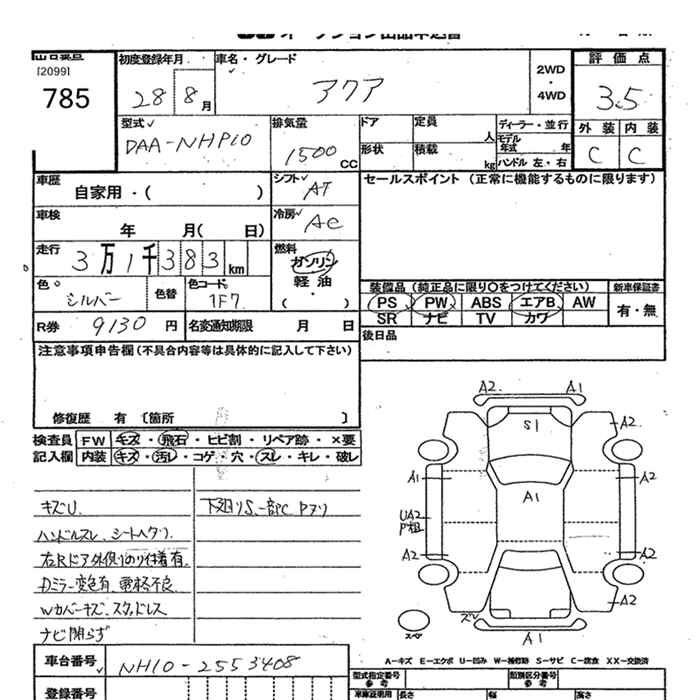 オークション出品申込書
[2099]
785
初度登録年月 28 8 月
車名・グレード アクア
2WD・4WD
評価点 3.5
外装 内装
C C
型式 DAA-NHP10
排気量 1500 CC
ドア 定員 人
形状 積載 kg
ディーラー・並行
モデル年式 年
ハンドル 左・右
車歴 自家用・( )
シフト AT
セールスポイント (正常に機能するものに限ります)
車検 年 月( 日)
冷房 AC
走行 3万1千383 km
燃料 ガソリン 軽油 ( ・ )
色 シルバー 色替
色コード 1F7
装備品 (純正品に限り〇をつけてください) 新車保証書
PS PW ABS エアB AW 有・無
SR ナビ TV カワ
R券 9130 円 名変通知期限 月 日
後日品
注意事項申告欄(不具合内容等は具体的に記入して下さい)
修復歴 有 〔箇所 〕
検査員 FW キズ・飛石・ヒビ割・リペア跡・×要
記入欄 内装 キズ・汚レ・コゲ・穴・スレ・キレ・破レ
キズU.
下廻りS、一部C Pヌリ
ハンドルスレ、シートヘタリ.
右Rドア外側のり付着有.
Dミラー変色有、電格不良
Wカバーキズ、スタッドレス
ナビ開らず
A2 A1
S1
A2 A2
A2 A1 A2
UA2
P粗
A2 A2
A2
ズレ
スペア
A1
A-キズ E-エクボ U-凹み W-補修跡 S-サビ C-腐食 XX-交換済
車台番号 NH10-2553408
登録番号
型式指定番号 参考
類別区分番号 参考
車庫証明用 長さ 幅 高さ